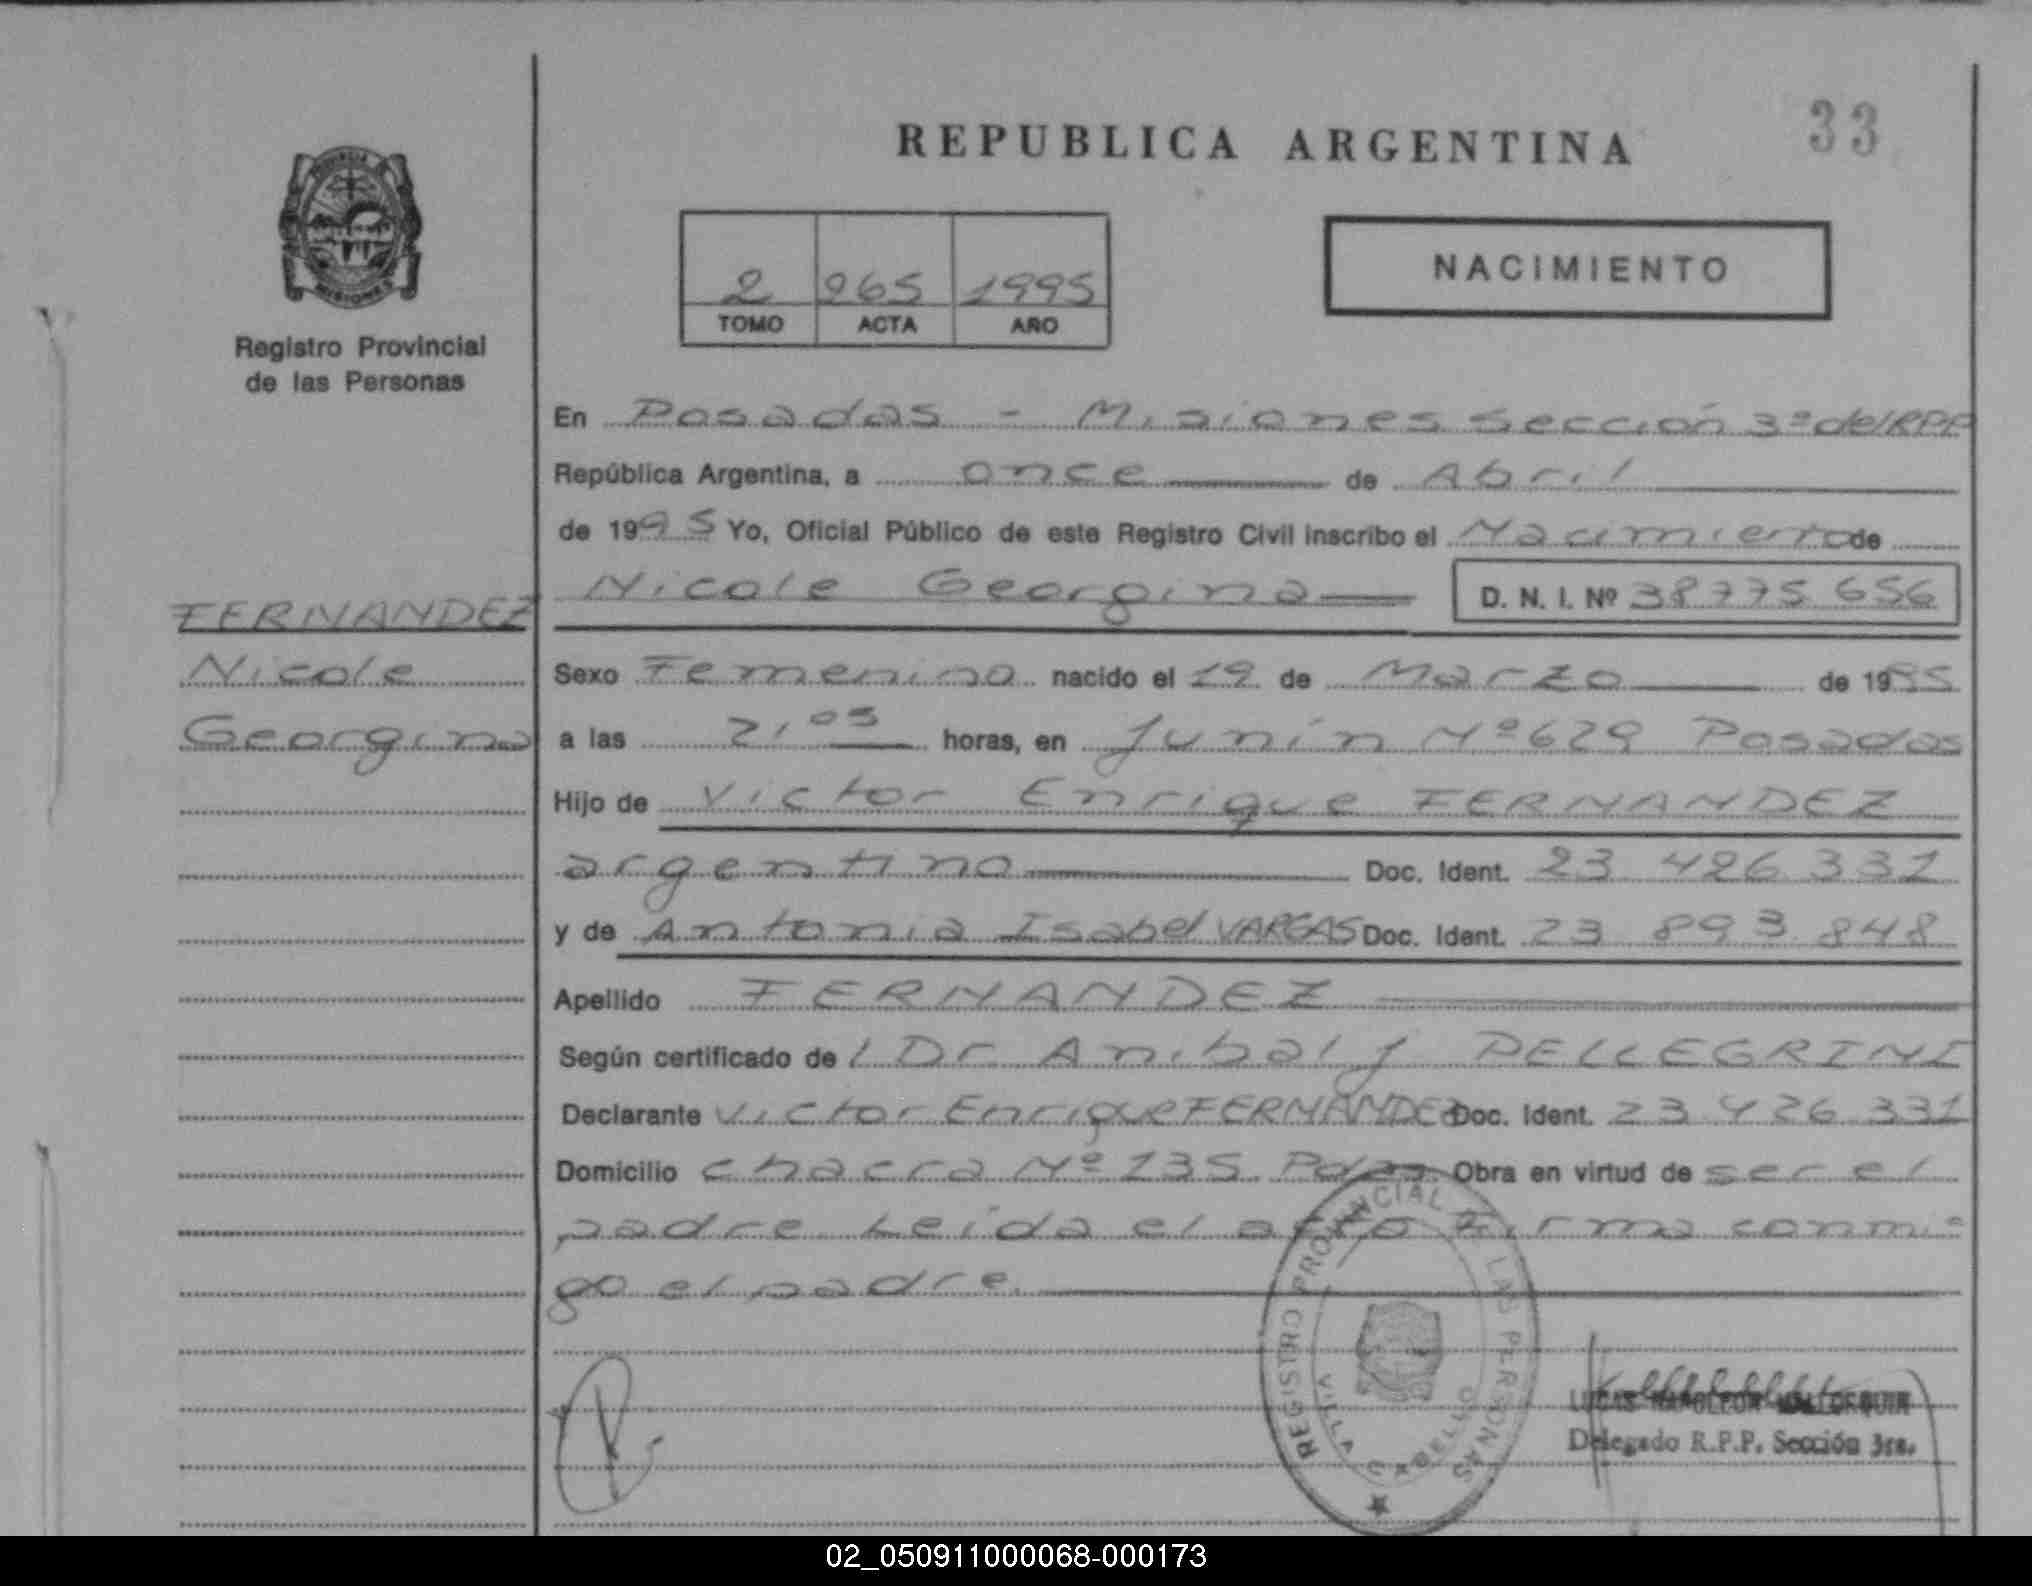 33
REPUBLICA ARGENTINA
PROVINCIA
MISIONES
Registro Provincial
de las Personas
2 265 1995
TOMO ACTA AÑO
NACIMIENTO
En Posadas - Misiones Sección 3ª del RPP
República Argentina, a once de Abril
de 1995 Yo, Oficial Público de este Registro Civil inscribo el Nacimiento de
Nicole Georgina D. N. I. Nº 38775 656
FERNANDEZ
Nicole
Georgina
Sexo Femenino nacido el 19 de Marzo de 1995
a las 2,05 horas, en Junín Nº 629 Posadas
Hijo de Victor Enrique FERNANDEZ
argentino Doc. Ident. 23 426 331
y de Antonia Isabel VARGAS Doc. Ident. 23 893 848
Apellido FERNANDEZ
Según certificado de l Dr Anibal J PELLEGRINI
Declarante Victor Enrique FERNANDEZ Doc. Ident. 23 426 331
Domicilio chacra Nº 135 Pdas Obra en virtud de ser el
padre Leida el acta Firma conmi=
go el padre.
REGISTRO PROVINCIAL DE LAS PERSONAS
VILLA CABELLO
LUCAS NAPOLEON
Delegado R.P.P. Sección 3ra.
02_050911000068-000173